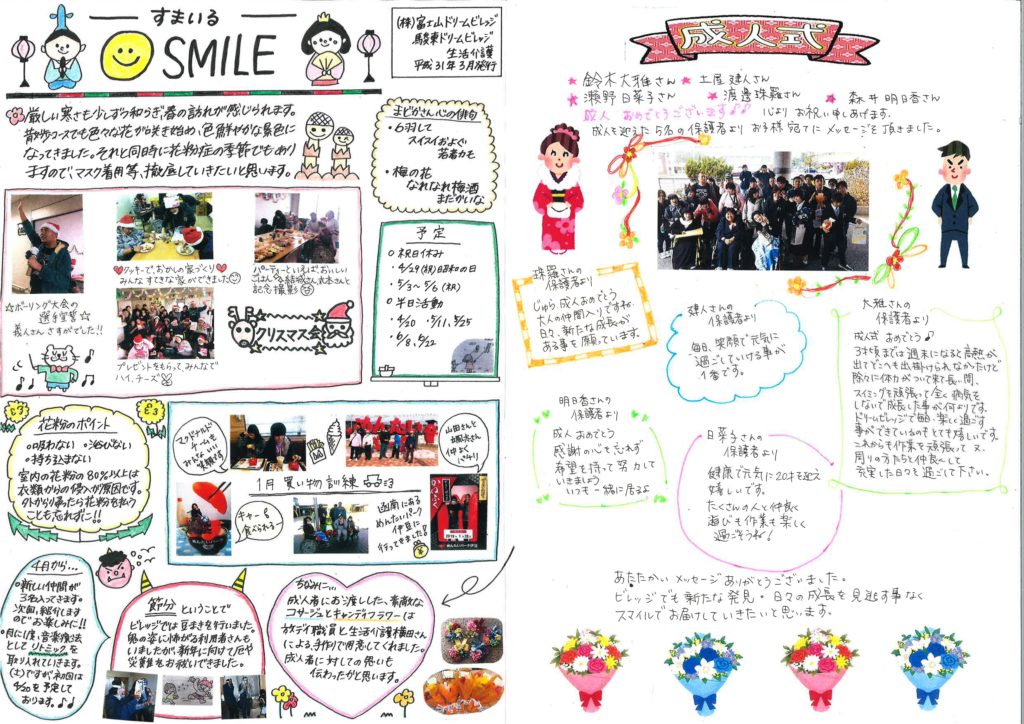 すまいる
SMILE
(株)富士山ドリームビレッジ
駿東ドリームビレッジ
生活介護
平成31年3月発行
厳しい寒さも少しずつ和らぎ、春の訪れが感じられます。
散歩コースでも色々な花が咲き始め、色鮮やかな景色に
なってきました。それと同時に花粉症の季節でもあり
ますので、マスク着用等、徹底していきたいと思います。
まどかさん心の俳句
・6羽して
スイスイおよぐ
若者カモ
・梅の花
なれなれ梅酒
まだかいな
☆ボーリング大会の
選手宣誓☆
義人さん さすがでした!!
クッキーで、おかしの家づくり
みんなすてきな家ができました
パーティーといえばおいしい
ごはん
記念撮影
プレゼントをもらって、みんなで
ハイ、チーズ
クリスマス会
予定
○祝日休み
・4/29(祝)昭和の日
・5/3〜5/6(祝)
○半日活動
・4/20 ・5/11、5/25
・6/8、6/22
花粉のポイント
・吸わない ・浴びない
・持ち込まない
室内の花粉の80%以上は
衣類からの侵入が原因です。
外から帰ったら花粉を払う
ことも忘れずに!!
マクドナルド
チームも
みんなで
山田さんと
仲よく
1月 買い物訓練
キャー
食べられる〜
函南にある
めんたいパーク
伊豆に
行ってきました!
かねふく
めんたいパーク伊豆
4月から…
・新しい仲間が
3名入ってきます。
次回、紹介します
のでお楽しみに!!
・月に1度、音楽療法
として リトミック を
取り入れていきます。
(土)ですが、初回は
4/20を予定して
おります。♪♪
節分 ということで
ビレッジでは豆まきを行いました。
鬼の姿に怖がる利用者さんも
いましたが、新年に向けて厄や
災難をお祓いできました。
ちなみに…
成人者にお渡しした、素敵な
コサージュとキャンディフラワーは
放デイ職員と生活介護横田さん
による、手作りで用意してくれました。
成人者に対しての思いも
伝わったかと思います。
成人式
★鈴木大雅さん ★土屋建人さん
★瀬野日菜子さん ★渡邊珠羅さん ★森井明日香さん
成人 おめでとうございます♪♪ 心よりお祝い申しあげます。
成人を迎えた5名の保護者より お子様宛てにメッセージを頂きました。
珠羅さんの
保護者より
じゅら、成人おめでとう
大人の仲間入りですね。
日々、新たな成長が
ある事を願っています。
建人さんの
保護者より
毎日、笑顔で元気に
過ごしていける事が
1番です。
大雅さんの
保護者より
成人式 おめでとう♪
3才頃までは週末になると高熱が
出てどこへも出掛けられなかったけど
除々に体力がついて来て長い間、
スイミングを頑張って全く病気を
しないで成長した事が何よりです。
ドリームビレッジで毎日、楽しく過ごす
事ができているのもとても嬉しいです。
これからも作業を頑張って又、
周りの方たちと仲良くして
充実した日々を過ごして下さい。
明日香さんの
保護者より
成人おめでとう
感謝の心を忘れず
希望を持って努力して
いきましょう
いつも一緒に居るよ
日菜子さんの
保護者より
健康で元気に20才を迎え
嬉しいです。
たくさんの人と仲良く
遊びも作業も楽しく
過ごそうね!
あたたかい メッセージありがとうございました。
ビレッジでも新たな発見・日々の成長を見逃す事なく
スマイルでお届けしていきたいと思います。